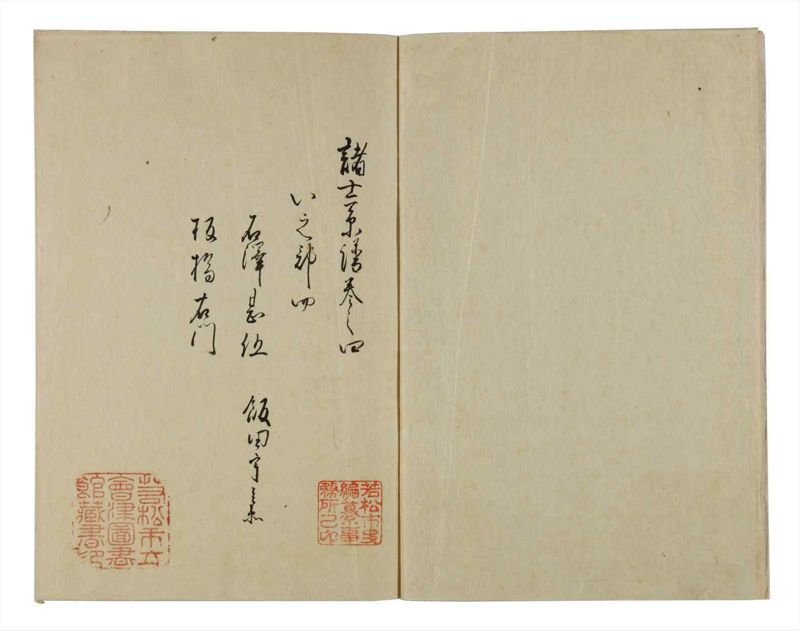 諸士系譜巻之四
い之部 四
石澤甚伍 飯田宇兵
板橋右門
若松市史
編纂事
務所之印
若松市立
會津圖書
館藏書印